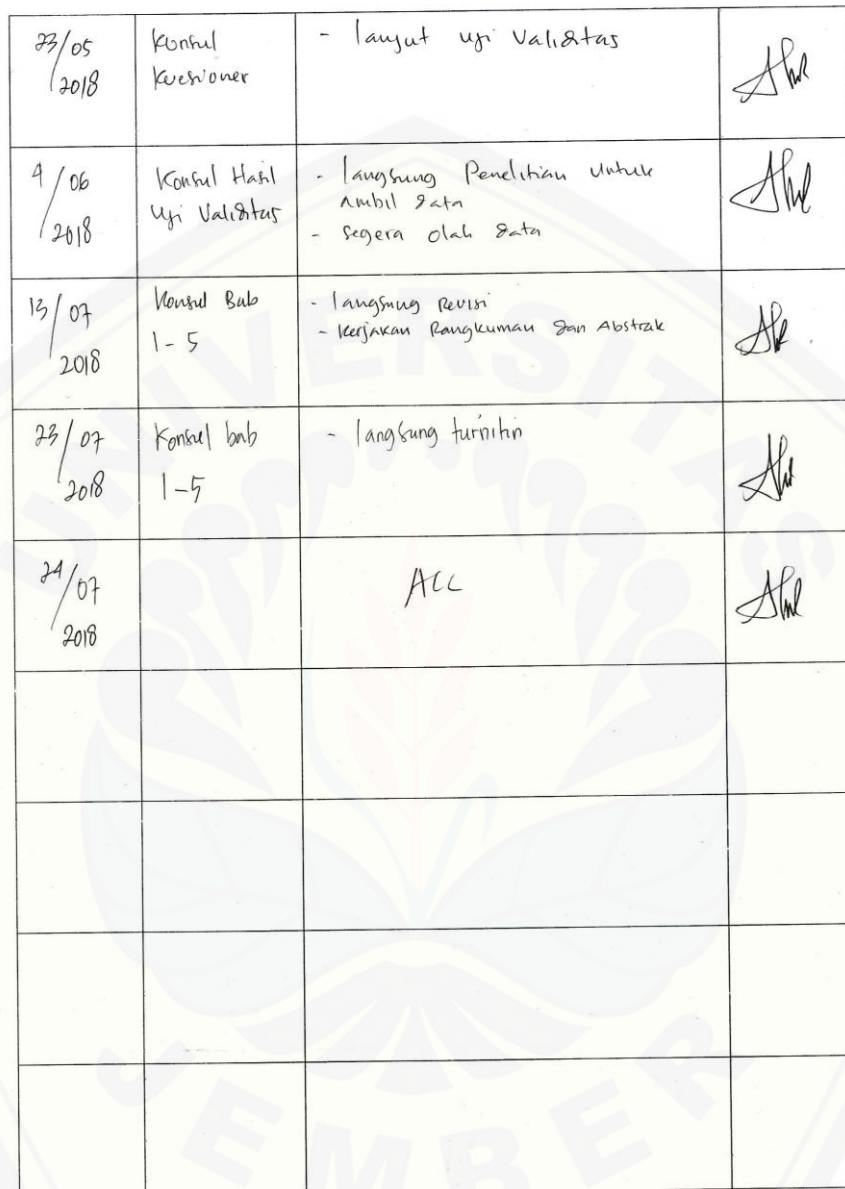 23/05
2018
Konsul
Kuesioner
- lanjut uji Validitas
4/06
2018
Konsul Hasil
Uji Validitas
- langsung Penelitian Untuk
ambil data
- segera olah data
13/07
2018
Konsul Bab
1-5
- langsung Revisi
- Kerjakan Rangkuman dan Abstrak
23/07
2018
Konsul bab
1-5
- langsung turnitin
24/07
2018
ACC
UNIVERSITAS
JEMBER